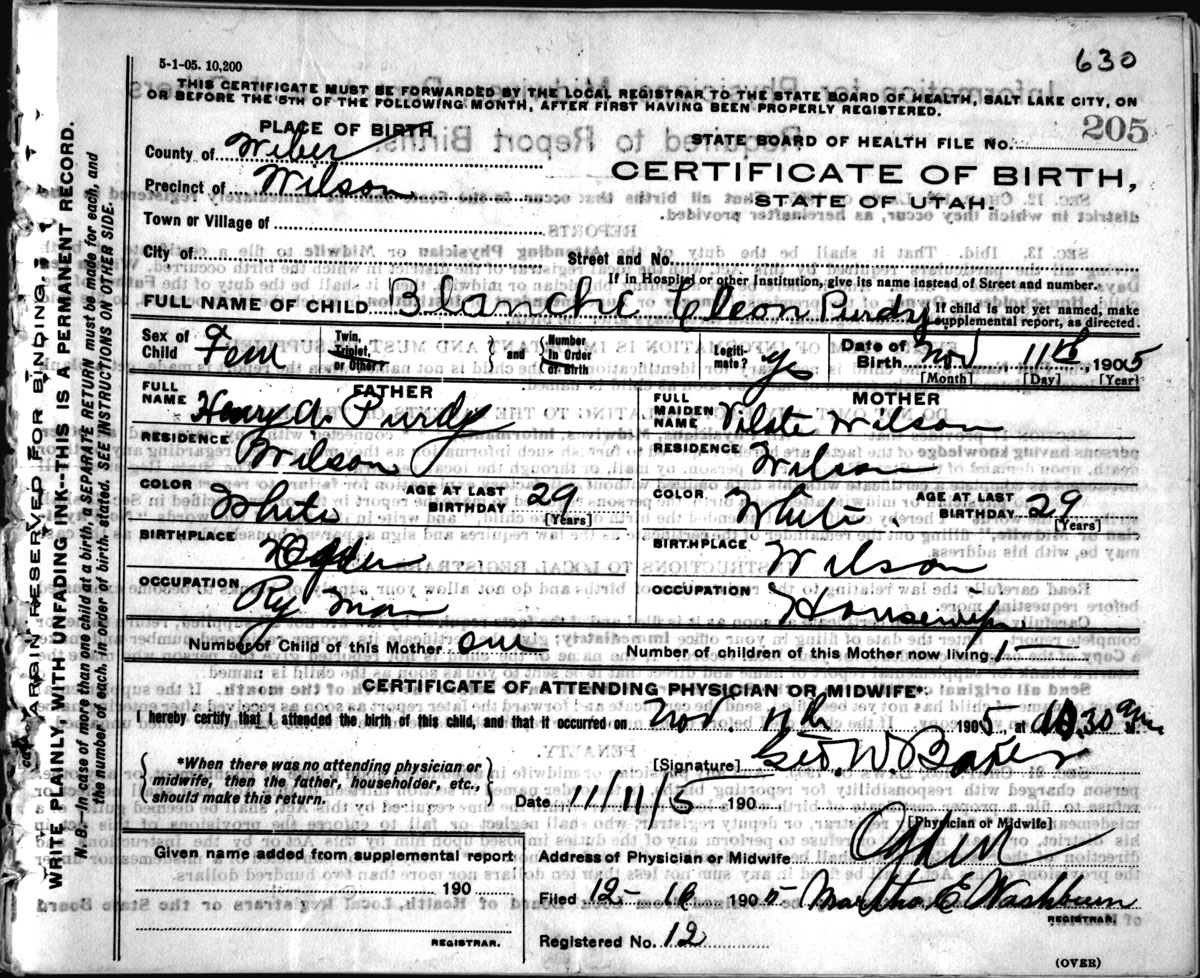 5-1-05. 10,200
630
THIS CERTIFICATE MUST BE FORWARDED BY THE LOCAL REGISTRAR TO THE STATE BOARD OF HEALTH, SALT LAKE CITY, ON
OR BEFORE THE 5TH OF THE FOLLOWING MONTH, AFTER FIRST HAVING BEEN PROPERLY REGISTERED.
PLACE OF BIRTH
STATE BOARD OF HEALTH FILE No. 205
County of Weber
CERTIFICATE OF BIRTH,
Precinct of Wilson
STATE OF UTAH.
Town or Village of
City of
Street and No.
If in Hospital or other Institution, give its name instead of Street and number.
FULL NAME OF CHILD Blanche Cleon Purdy
If child is not yet named, make
supplemental report, as directed.
Sex of
Child Fem
Twin,
Triplet,
or Other?
and
Number
in Order
of Birth
Legiti-
mate? yes
Date of
Birth Nov 11th, 1905
[Month] [Day] [Year]
FATHER
FULL
NAME Henry A. Purdy
RESIDENCE Wilson
COLOR White
AGE AT LAST
BIRTHDAY 29
[Years]
BIRTHPLACE Ogden
OCCUPATION Ry man
MOTHER
FULL
MAIDEN
NAME Vilate Wilson
RESIDENCE Wilson
COLOR White.
AGE AT LAST
BIRTHDAY 29
[Years]
BIRTHPLACE Wilson
OCCUPATION Housewife
Number of Child of this Mother one
Number of children of this Mother now living 1
CERTIFICATE OF ATTENDING PHYSICIAN OR MIDWIFE*
I hereby certify that I attended the birth of this child, and that it occurred on Nov. 11th 1905, at 10.30 a M.
*When there was no attending physician or
midwife, then the father, householder, etc.,
should make this return.
[Signature] Geo. W. Baker
Date 11/11/5 190
[Physician or Midwife]
Given name added from supplemental report
190
REGISTRAR.
Address of Physician or Midwife Ogden
Filed 12- 1905 Martha E Washburn
REGISTRAR.
Registered No. 12
(OVER)
MARGIN RESERVED FOR BINDING.
WRITE PLAINLY, WITH UNFADING INK--THIS IS A PERMANENT RECORD.
N. B.—In case of more than one child at a birth, a SEPARATE RETURN must be made for each, and
the number of each, in order of birth, stated. SEE INSTRUCTIONS ON OTHER SIDE.